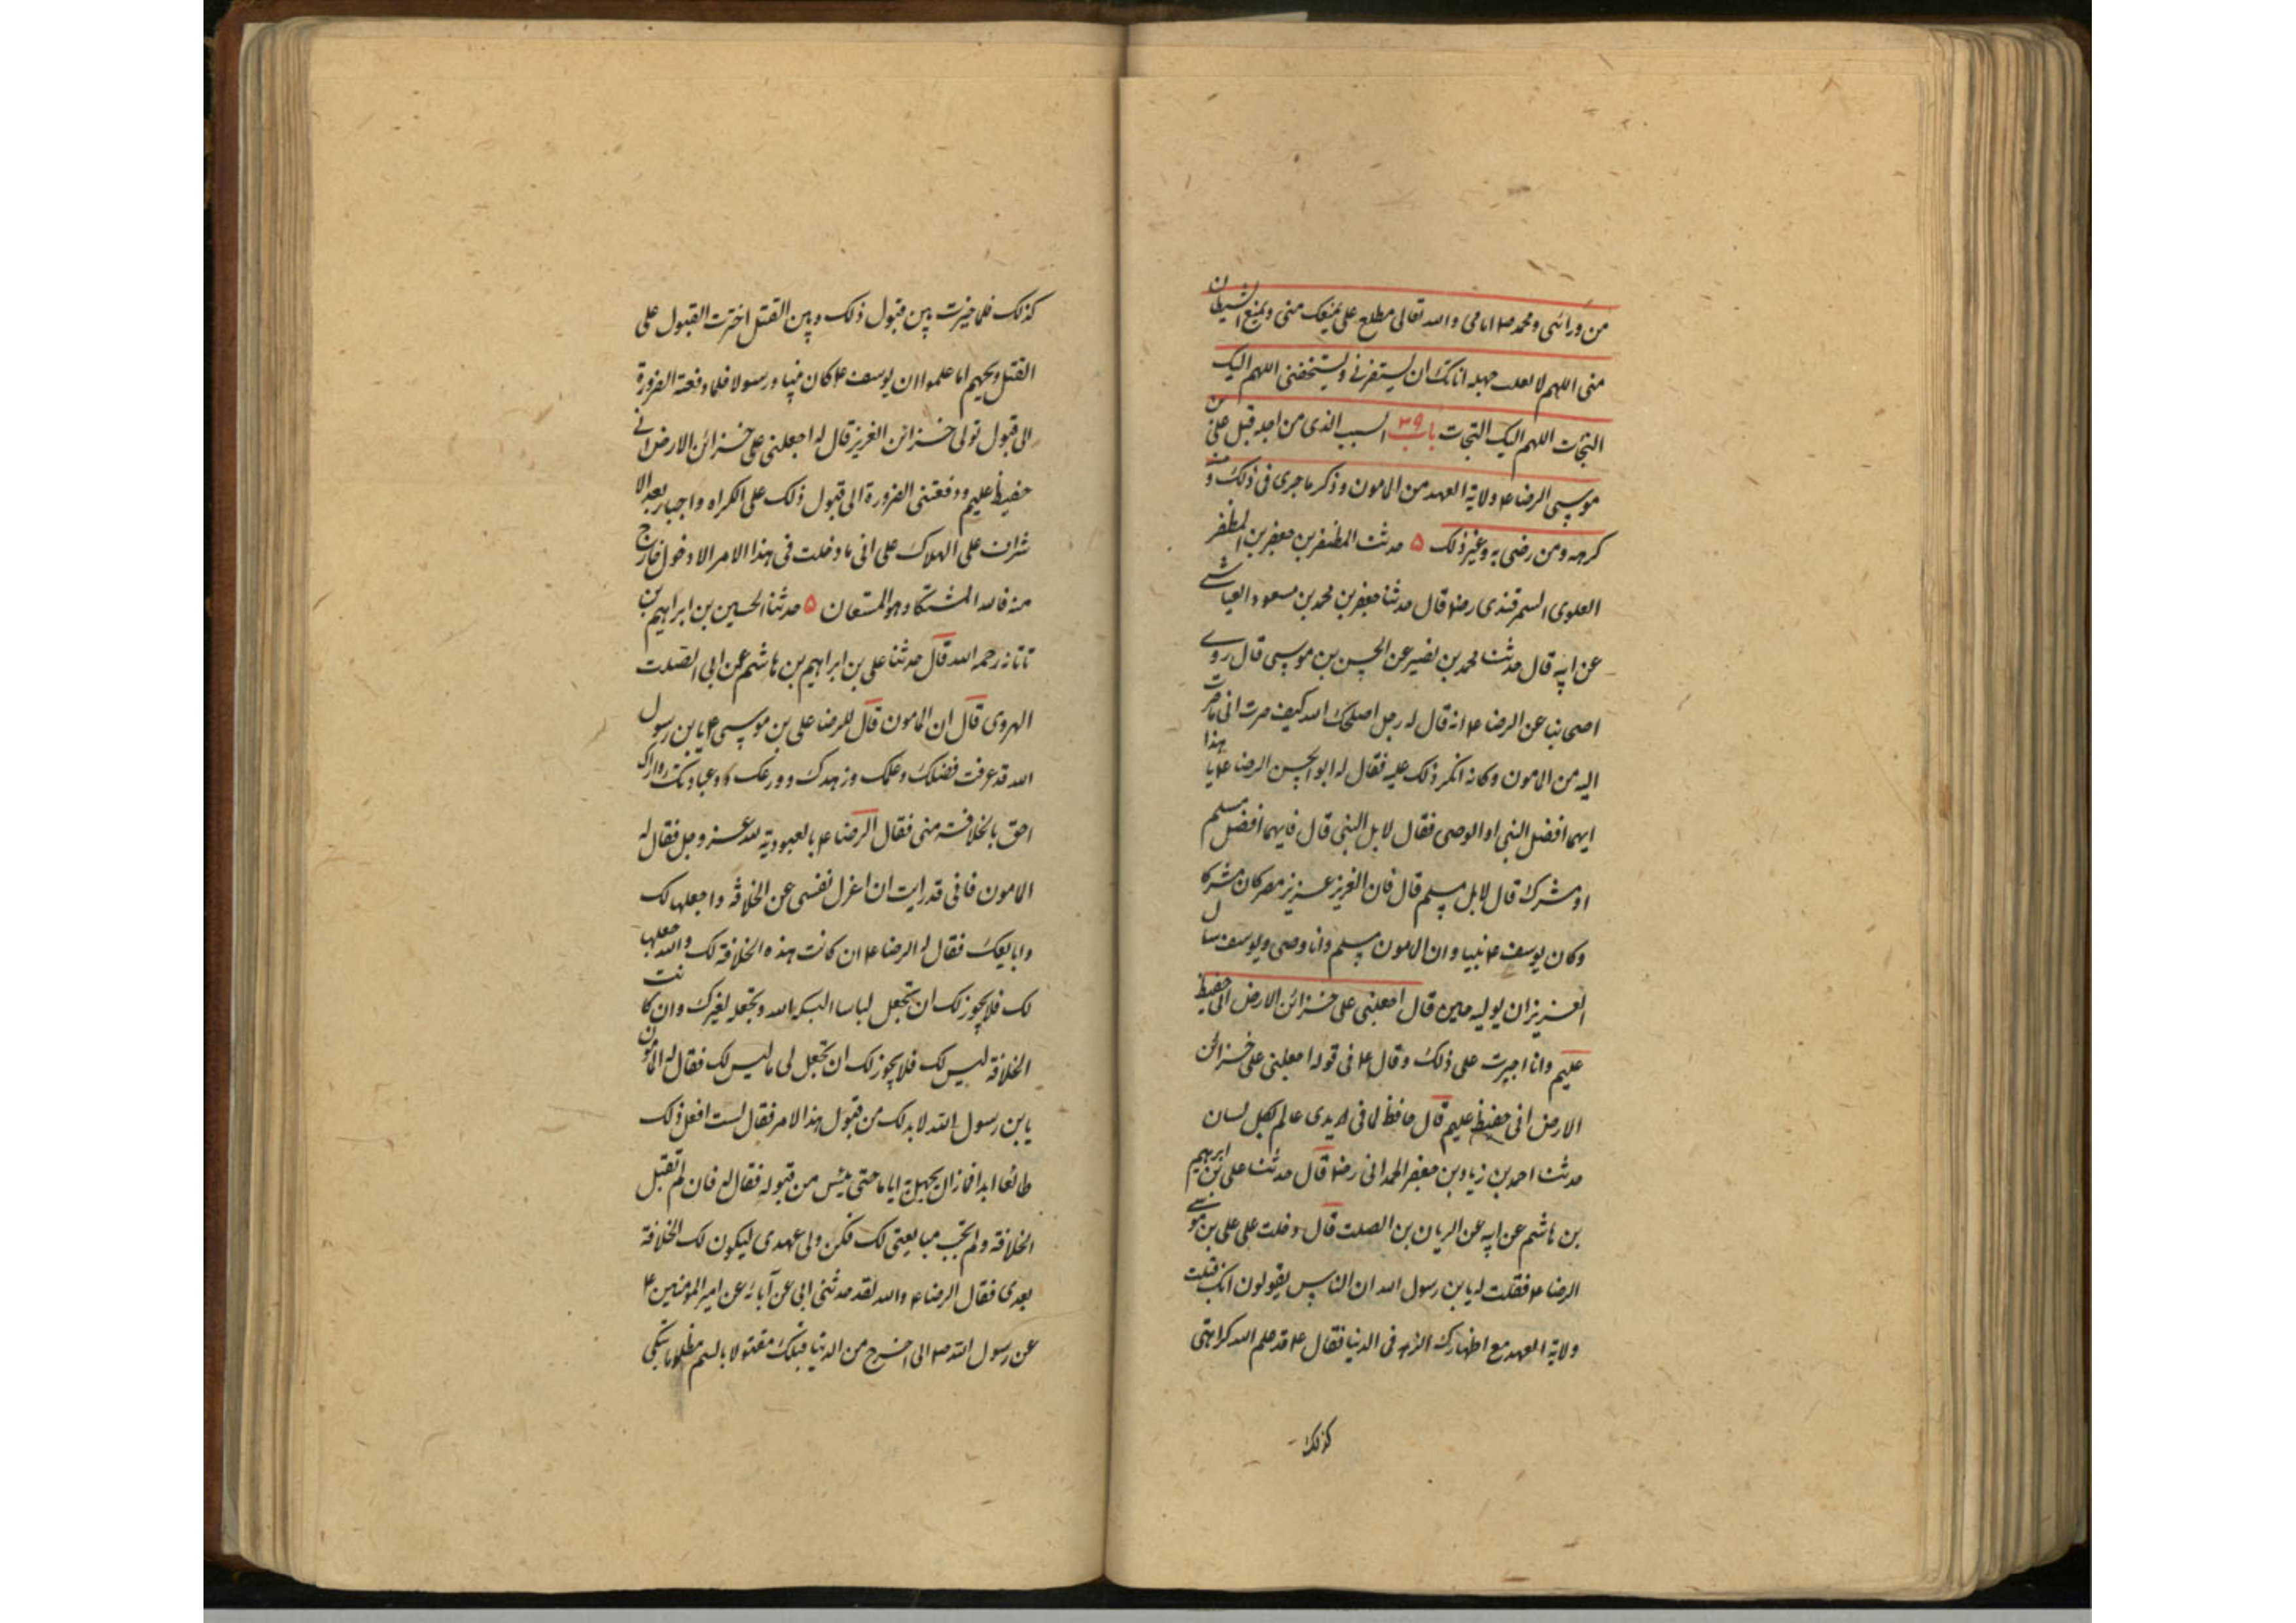 من ورائی و محمد ص امامی والله تعالی مطلع علی یمنعک منی و یمنع الشیطان
منی اللهم لا یغلب جهله اناتک ان یستفزنی و یستخفنی اللهم الیک
التجات اللهم الیک التجات باب ٣٩ السبب الذی من اجله قبل علی بن
موسی الرضا ع ولایة العهد من المامون و ذکر ما جری فی ذلک و من
کرهه و من رضی به و غیر ذلک ۵ حدثنا المظفر بن جعفر بن المظفر
العلوی السمرقندی رضه قال حدثنا جعفر بن محمد بن مسعود العیاشی
عن ابیه قال حدثنا محمد بن نصیر عن الحسن بن موسی قال روی
اصحابنا عن الرضا ع انه قال له رجل اصلحک الله کیف صرت الی ما صرت
الیه من المامون و کانه انکر ذلک علیه فقال له ابو الحسن الرضا ع یا هذا
ایهما افضل النبی او الوصی فقال لا بل النبی قال فایهما افضل مسلم
او مشرک قال لا بل مسلم قال فان العزیز عزیز مصر کان مشرکا
و کان یوسف ع نبیا و ان المامون مسلم و انا وصی و یوسف سال
العزیز ان یولیه حین قال اجعلنی علی خزائن الارض انی حفیظ
علیم و انا اجبرت علی ذلک و قال ع فی قوله اجعلنی علی خزائن
الارض انی حفیظ علیم قال حافظ لما فی یدی عالم بکل لسان
حدثنا احمد بن زیاد بن جعفر الهمدانی رضه قال حدثنا علی بن ابرهیم
بن هاشم عن ابیه عن الریان بن الصلت قال دخلت علی علی بن موسی
الرضا ع فقلت له یا بن رسول الله ان الناس یقولون انک قبلت
ولایة العهد مع اظهارک الزهد فی الدنیا فقال ع قد علم الله کراهتی
کذلک
کذلک فلما خیرت بین قبول ذلک و بین القتل اخترت القبول علی
القتل ویحهم اما علموا ان یوسف ع کان نبیا و رسولا فلما دفعته الضرورة
الی قبول تولی خزائن العزیز قال له اجعلنی علی خزائن الارض انی
حفیظ علیم و دفعتنی الضرورة الی قبول ذلک علی اکراه و اجبار بعد الا
شراف علی الهلاک علی انی ما دخلت فی هذا الامر الا دخول خارج
منه فالله المشتکا و هو المستعان ۵ حدثنا الحسین بن ابراهیم بن
تاتانه رحمه الله قال حدثنا علی بن ابراهیم بن هاشم عن ابی الصلت
الهروی قال ان المامون قال للرضا علی بن موسی ع یا بن رسول
الله قد عرفت فضلک و علمک و زهدک و ورعک و عبادتک و اراک
احق بالخلافة منی فقال الرضا ع بالعبودیة لله عز و جل فقال له
المامون فانی قد رایت ان اعزل نفسی عن الخلافة و اجعلها لک
و ابایعک فقال له الرضا ع ان کانت هذه الخلافة لک و الله جعلها
لک فلا یجوز لک ان تجعل لباسا البسکه الله و تجعله لغیرک و ان کانت
الخلافة لیس لک فلا یجوز لک ان تجعل لی ما لیس لک فقال له المامون
یا بن رسول الله لا بد لک من قبول هذا الامر فقال لست افعل ذلک
طائعا ابدا فما زال یجهد به ایاما حتی یئس من قبوله فقال له فان لم تقبل
الخلافة و لم تجب مبایعتی لک فکن ولی عهدی لیکون لک الخلافة
بعدی فقال الرضا ع والله لقد حدثنی ابی عن آبائه عن امیر المومنین ع
عن رسول الله ص انی اخرج من الدنیا قبلک مقتولا بالسم مظلوما تبکی